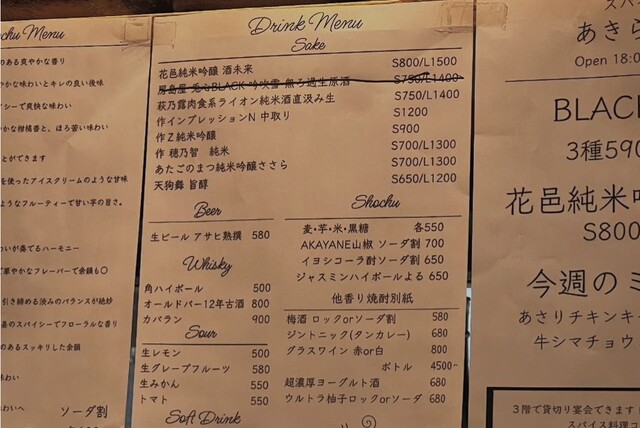 chu Menu
のある爽やかな香り
やかな味わいとキレの良い後味
イシーで爽快な味わい
かな柑橘香と、ほろ苦い味わい
とができます
を使ったアイスクリームのような甘味
ようなフルーティーで甘い芋の旨さ。
わいが奏でるハーモニー
華やかなフレーバーで余韻も〇
引き締める渋みのバランスが絶妙
のスパイシーでフローラルな香り
のあるスッキリした余韻
味わい
味わいへ
ソーダ割
Drink Menu
Sake
花邑純米吟醸 酒未来 S800/L1500
房島屋 兎心BLACK 吟吹雪 無ろ過生原酒 S750/L1400
萩乃露肉食系ライオン純米酒直汲み生 S750/L1400
作インプレッションN 中取り S1200
作Z純米吟醸 S900
作 穂乃智 純米 S700/L1300
あたごのまつ純米吟醸ささら S700/L1300
天狗舞 旨醇 S650/L1200
Beer
生ビール アサヒ熟撰 580
Whisky
角ハイボール 500
オールドパー12年古酒 800
カバラン 900
Sour
生レモン 500
生グレープフルーツ 580
生みかん 550
トマト 550
Soft Drink
Shochu
麦・芋・米・黒糖 各550
AKAYANE山椒 ソーダ割 700
イヨシコーラ酎ソーダ割 650
ジャスミンハイボールよる 650
他香り焼酎別紙
梅酒 ロックorソーダ割 580
ジントニック(タンカレー) 680
グラスワイン 赤or白 800
ボトル 4500~
超濃厚ヨーグルト酒 680
ウルトラ柚子ロックorソーダ 680
スパイ
あきら
Open 18:0
BLACK
3種590
花邑純米
S800
今週のミ
あさりチキンキー
牛シマチョウ
3階で貸切り宴会できます
スパイス料理コ